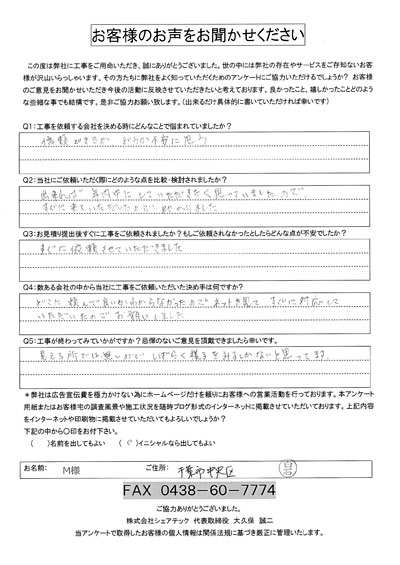 お客様のお声をお聞かせください
この度は弊社に工事をご用命いただき、誠にありがとうございました。世の中には弊社の存在やサービスをご存知ないお客
様が沢山いらっしゃいます。その方たちに弊社をよく知っていただくためのアンケートにご協力いただけるでしょうか？ お客様
のご意見をお聞かせいただき今後の活動に反映させていただきたいと考えております。良かったこと、嬉しかったことどのよう
な些細な事でも結構です。是非ご協力お願い致します。（出来るだけ具体的に書いていただければ幸いです）
Q1:工事を依頼する会社を決める時にどんなことで悩まれていましたか？
信頼ができるか どうか不安に思う
Q2:当社にご依頼いただく際にどのような点を比較・検討されましたか？
出来れば 年内中に していただきたく思っていましたので
すぐに来ていただけたので 助かりました
Q3:お見積り提出後すぐに工事をご依頼されましたか？もしご依頼されなかったとしたらどんな点が不安でしたか？
すぐに依頼させていただきました
Q4:数ある会社の中から当社に工事をご依頼いただいた決め手は何ですか？
どこに頼んで良いかわからなかったので ネットを見て すぐに対応して
いただいたのでお願いしました
Q5:工事が終わってみていかがですか？忌憚のないご意見を頂戴できましたら幸いです。
見える所では無いので しばらく様子をみるしかないと思ってます
＊弊社は広告宣伝費を極力かけない為にホームページだけを頼りにお客様への営業活動を行っております。本アンケート
用紙またはお客様宅の調査風景や施工状況を随時ブログ形式のインターネットに掲載させていただいております。上記内容
をインターネットや印刷物に掲載させていただいてもよろしいでしょうか？
下記の中から〇印をお付下さい。
（ ）名前を出してもよい （○）イニシャルなら出してもよい
お名前: M様 ご住所: 千葉市中央区
FAX 0438-60-7774
ご協力ありがとうございました。
株式会社シェアテック 代表取締役 大久保 誠二
当アンケートで取得したお客様の個人情報は関係法規に基づき厳正に管理いたします。